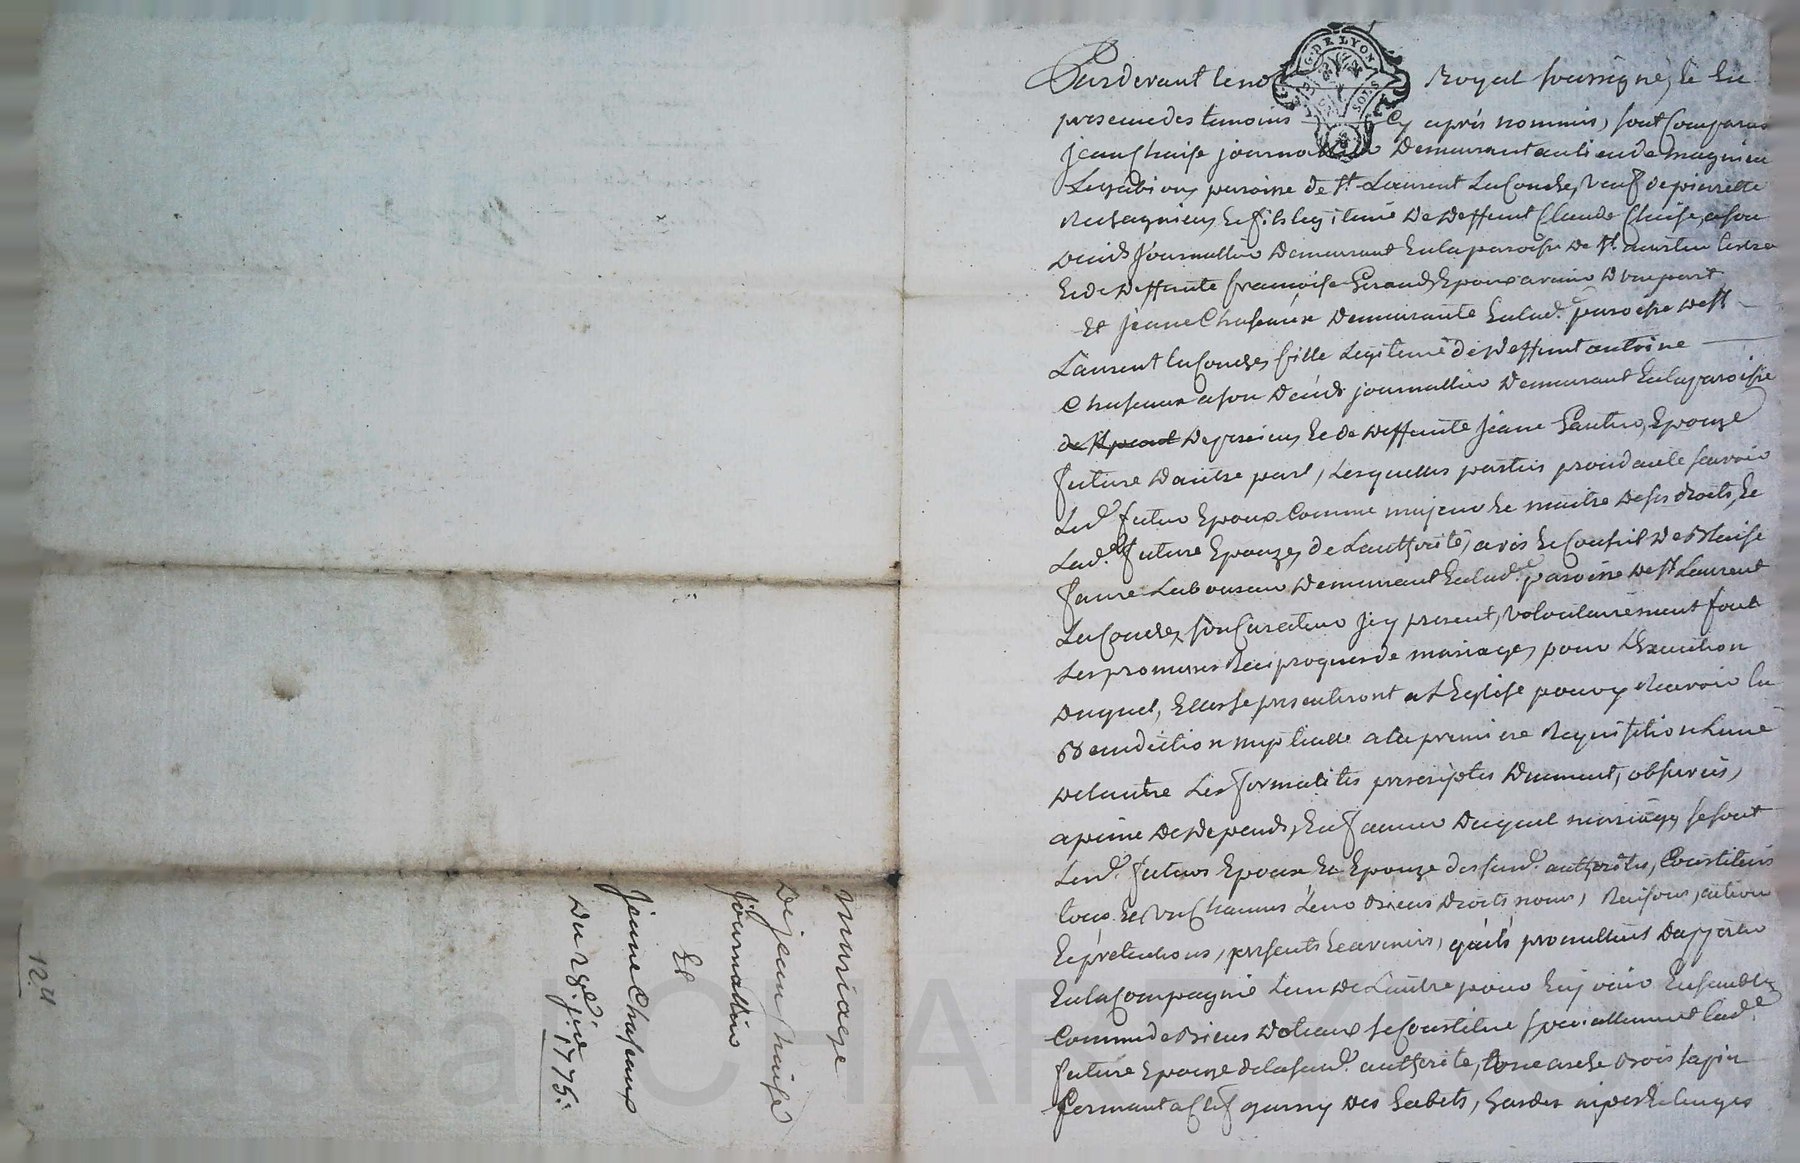 Pardevant le no Royal soussigné, & en
presence des temoins cy après nommés, sont comparus
jean Chaise journallier Demeurant au lieu de magnieu
Legabion, paroisse de St. Laurent La Conche, veuf de pierrette
& fils legitime De Deffunt Claude Chaise, a son
Décès Journallier Demeurant En la paroisse De St.
Et de Deffunte francoise Giraud, Epoux avenir D'une part
Et Jeane Chaseaux Demeurante En lad.e paroisse De St
Laurent la Conche, fille Legitime de Deffunt antoine
Chaseaux a son Décés journallier Demeurant En la paroisse
de Et de Deffunte Jeane Gautier, Epouze
future D'autre part, Lesquelles parties procédant Savoir
Led. futur Epoux Comme majeur & maitre De ses droits, &
Lad.e future Epouze, de L'authorité, avis & Conseil De Blaise
faure Laboureur Demeurant En lad.e paroisse De St Laurent
La Conche, son Curateur Icy present, volontairement font
Les promesses Reciproques de mariage, pour L'Execution
Duquel, Elles se presenteront a L'Eglise pour y Recevoir la
Benediction nuptialle a la premiere Requisition L'une
De L'autre Les formalités prescriptes Duement, observées,
a peine De Depends, En faveur Duquel mariage, se sont
Lesd. futurs Epoux Et Epouze des susd. authorités, Constitués
tous & un Chacuns Leurs Biens Droits noms, Raisons, action
Et prétentions, présents & avenirs, qu'ils promettent D'apporter
En la Compagnie L'un De L'autre pour En jouir Ensemble
Comme de Biens Dotaux se Constitue spéciallement Lad.e
future Epouze de la susd. authorité, une arche Bois sapin
fermant a Clef garny Des habits, hardes nipes & linges
mariage
De jean Chaise
Journallier
Et
Jeanne Chaseaux
Du 28.e j.er 1775.
G. DE LYON
SOLS